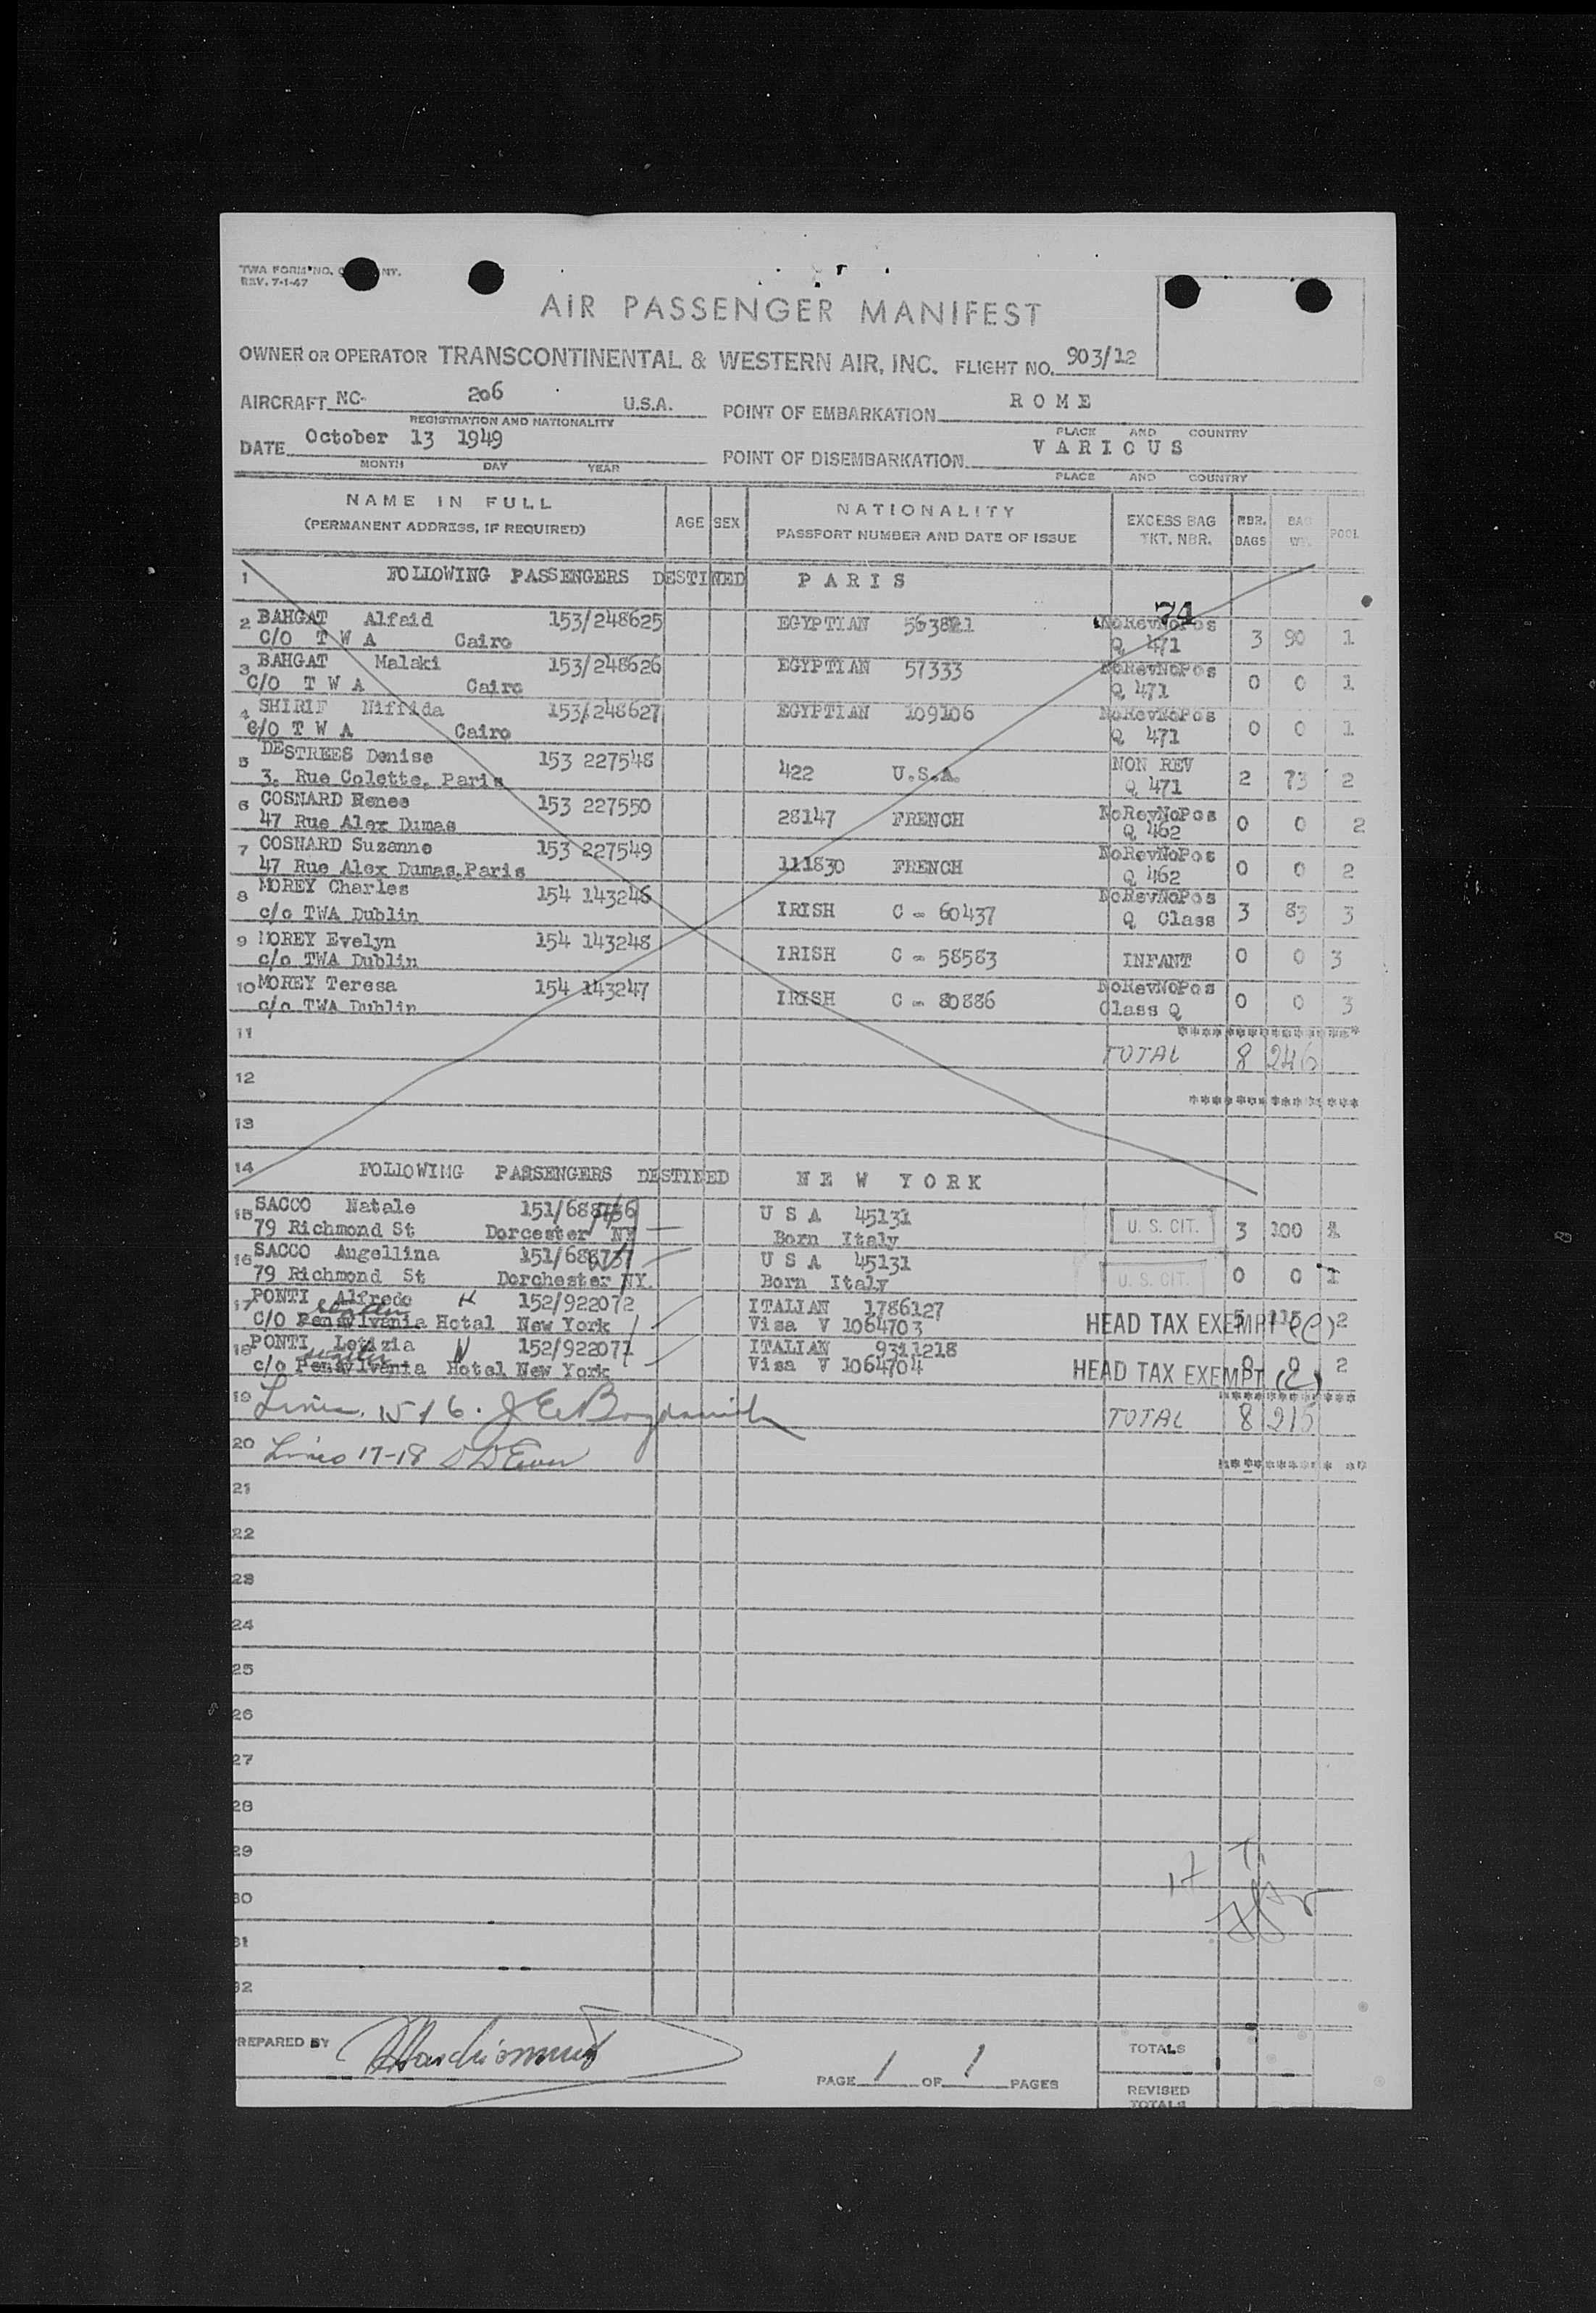 TWA FORM NO. NY.
REV. 7-1-47
AIR PASSENGER MANIFEST
OWNER OR OPERATOR TRANSCONTINENTAL & WESTERN AIR, INC. FLIGHT NO. 903/12
AIRCRAFT NC- 206 U.S.A. POINT OF EMBARKATION ROME
REGISTRATION AND NATIONALITY PLACE AND COUNTRY
DATE October 13 1949 POINT OF DISEMBARKATION VARIOUS
MONTH DAY YEAR PLACE AND COUNTRY
NAME IN FULL AGE SEX NATIONALITY EXCESS BAG NBR. BAG POOL
(PERMANENT ADDRESS, IF REQUIRED) PASSPORT NUMBER AND DATE OF ISSUE TKT. NBR. BAGS WT.
1 FOLLOWING PASSENGERS DESTINED PARIS
74
2 BAHGAT Alfaid 153/248625 EGYPTIAN NoRevNoPos
C/O T W A Cairo Q 471 3 90 1
3 BAHGAT Malaki 153/248626 EGYPTIAN 57333 NoRevNoPos
C/O T W A Cairo Q 471 0 0 1
4 SHIRIF Niffida 153/248627 EGYPTIAN 109106 NoRevNoPos
c/O T W A Cairo Q 471 0 0 1
5 DESTREES Denise 153 227548 422 U.S.A. NON REV
3. Rue Colette, Paris Q 471 2 73 2
6 COSNARD Renee 153 227550 28147 FRENCH NoRevNoPos
47 Rue Alex Dumas Q 462 0 0 2
7 COSNARD Suzanne 153 227549 111830 FRENCH NoRevNoPos
47 Rue Alex Dumas,Paris Q 462 0 0 2
8 MOREY Charles 154 143246 IRISH C - 60437 NoRevNoPos
c/o TWA Dublin Q Class 3 83 3
9 MOREY Evelyn 154 143248 IRISH C - 58583 INFANT 0 0 3
c/o TWA Dublin
10 MOREY Teresa 154 143247 IRISH C - 80886 NoRevNoPos
c/o TWA Dublin Class Q 0 0 3
11 ****************
TOTAL 8 246
12 ***************
13
14 FOLLOWING PASSENGERS DESTINED NEW YORK
15 SACCO Natale U S A 45131 U. S. CIT. 3 100 1
79 Richmond St Dorcester NY Born Italy
16 SACCO Angellina U S A 45131 U. S. CIT. 0 0 1
79 Richmond St Dorchester NY. Born Italy
17 PONTI Alfredo 152/922072 ITALIAN 1786127
C/O Pensylvania Hotal New York Visa V 1064703 HEAD TAX EXEMPT (C) 5 115 2
18 PONTI Letizia 152/922071 ITALIAN 9311218
c/o Pensylvania Hotel New York Visa V 1064704 HEAD TAX EXEMPT (C) 0 0 2
19 Lines TOTAL 8 215
20 Lines 17-18
21
22
23
24
25
26
27
28
29
30
31
32
PREPARED BY TOTALS
PAGE 1 OF 1 PAGES REVISED
TOTALS